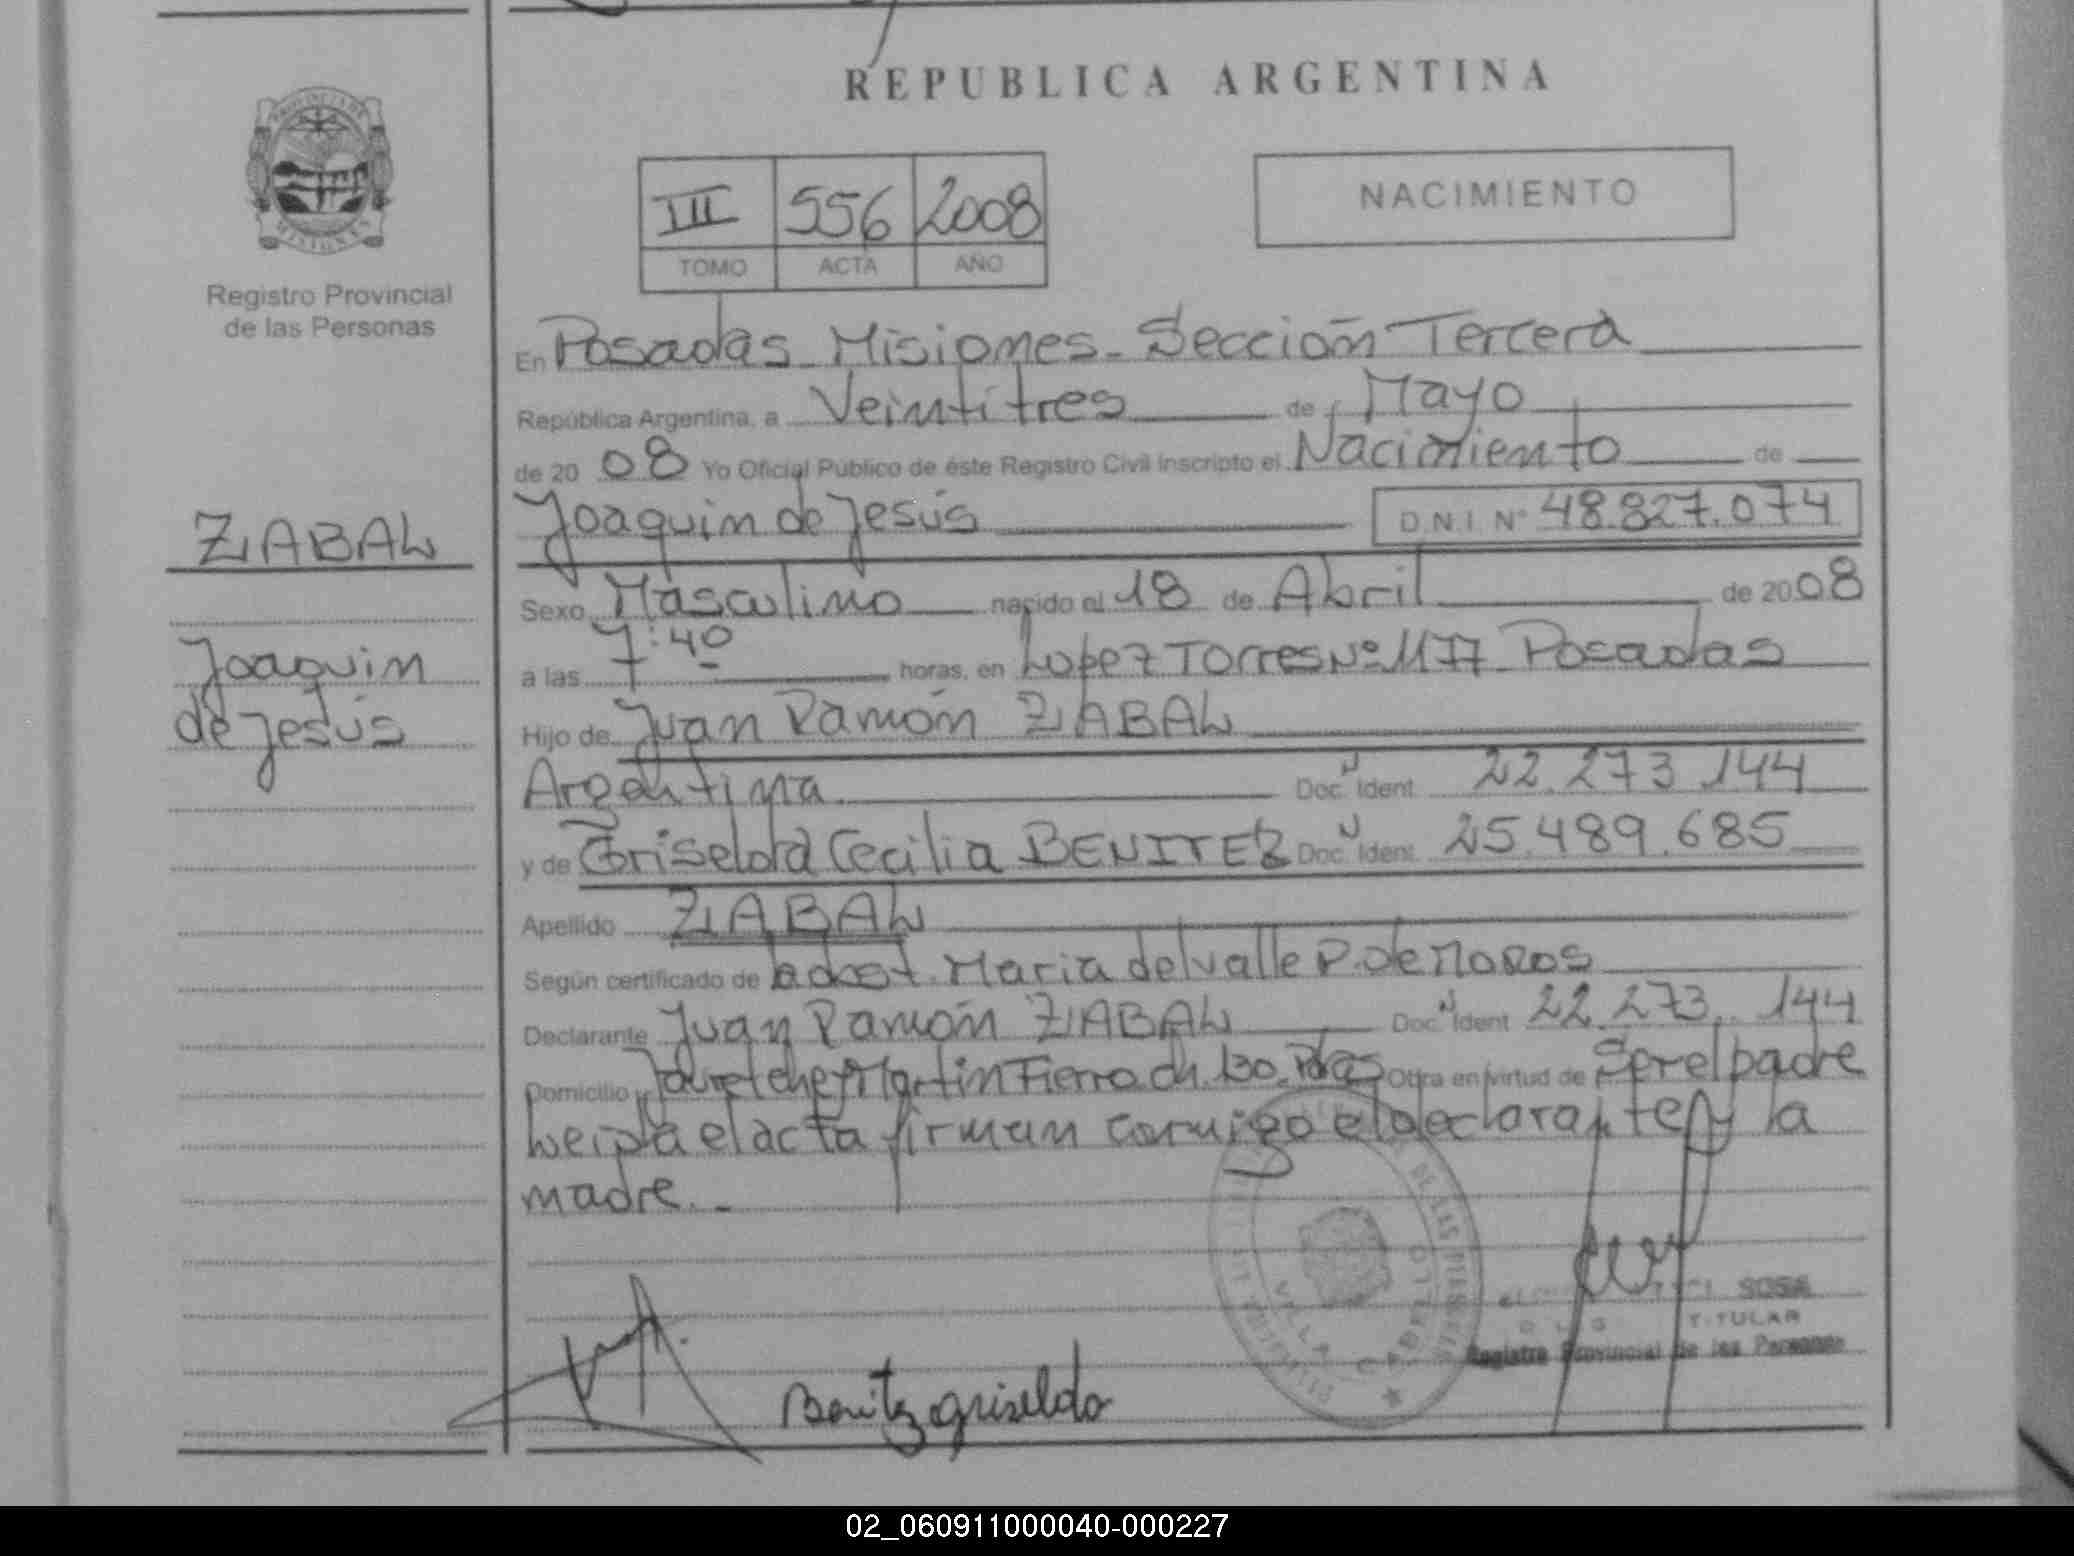 REPUBLICA ARGENTINA
PROVINCIA DE
MISIONES
Registro Provincial
de las Personas
III 556 2008
TOMO ACTA AÑO
NACIMIENTO
ZABAL
Joaquin
de Jesús
En Posadas Misiones. Sección Tercera
República Argentina, a Veintitres de Mayo
de 20 08 Yo Oficial Público de éste Registro Civil Inscripto el Nacimiento de
Joaquin de Jesús D.N.I. Nº 48.827.074
Sexo Masculino nacido el 18 de Abril de 2008
a las 7:40 horas, en Lopez Torres Nº 1177 Posadas
Hijo de Juan Ramón ZABAL
Argentina Doc. Ident. 22.273.144
y de Griselda Cecilia BENITEZ Doc. Ident. 25.489.685
Apellido ZABAL
Según certificado de obst. Maria del Valle P. de
Declarante Juan Ramón ZABAL Doc. Ident 22.273.144
Domicilio Jauretche y Martin Fierro ch. 130. Pdas Obra en virtud de Ser el padre
Leida el acta firman conmigo el declarante y la
madre.
Benitez griselda
VILLA CABELLO
SOSA
TITULAR
Registro Provincial de las Personas
02_060911000040-000227